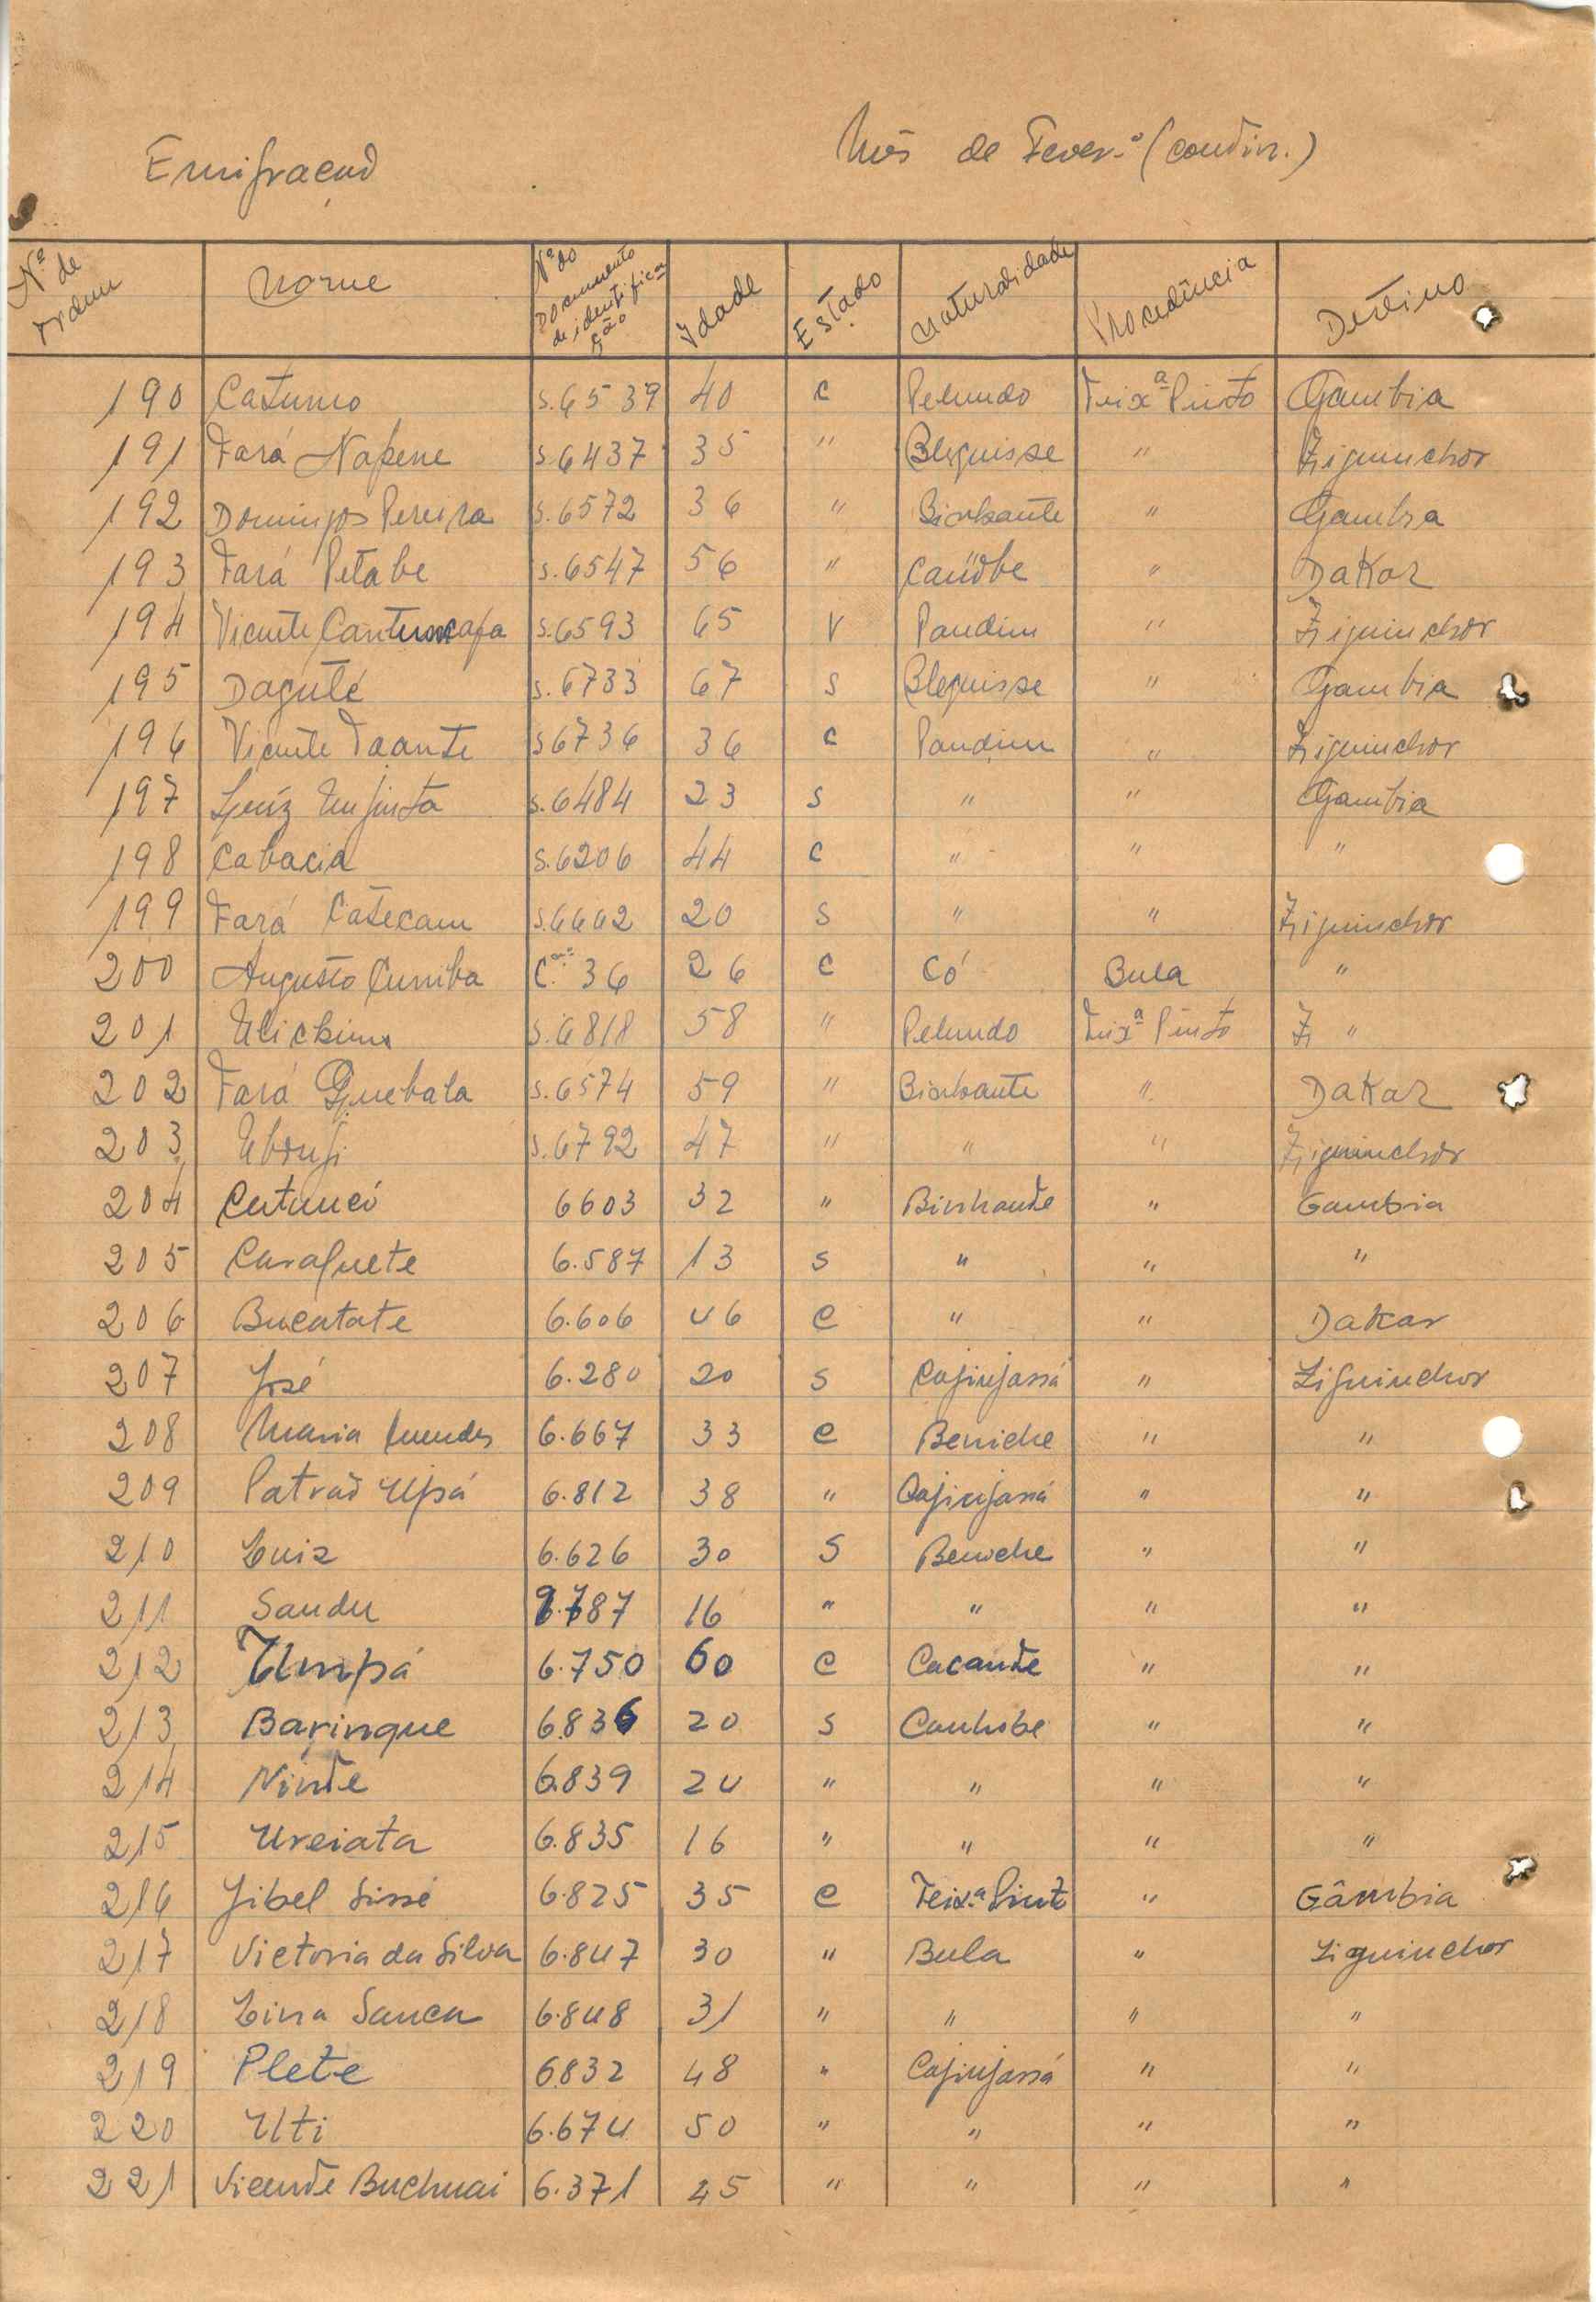 Emigração
Mês de Fever.º (contin.)
Nº de ordem Nome Nº do Documento de identificação Idade Estado Naturalidade Procedência Destino
190 Catumo s.6539 40 c Pelundo Teixª Pinto Gambia
191 Fará Napene s.6437 35 " Bleguisse " Ziguinchor
192 Domingos Pereira s.6572 36 " Binhante " Gambia
193 Fará Petabe s.6547 56 " " Dakar
194 Vicente s.6593 65 V Pandim " Ziguinchor
195 Daguté s.6733 67 s Bleguisse " Gambia
196 Vicente s6736 36 c Pandim " Ziguinchor
197 Luíz s.6484 23 s " " Gambia
198 Cabacia s.6206 44 c " " "
199 Fará Catecam 20 s " " Ziguinchor
200 Augusto Cumba C.ª 36 26 c Có Bula "
201 s.6818 58 " Pelundo Teixª Pinto Z "
202 Fará Quebala s.6574 59 " Binhante " Dakar
203 s.6792 47 " " " Ziguinchor
204 Cutumcó 6603 32 " Binhante " Gambia
205 Carafuete 6.587 13 s " " "
206 Bucatate 6.606 46 c " " Dakar
207 José 6.280 20 s Cajinjassá " Ziguinchor
208 Maria Mendes 6.667 33 c Beniche " "
209 Patrão Upá 6.812 38 " Cajinjassá " "
210 Luiz 6.626 30 s Beniche " "
211 Sandu 787 16 " " " "
212 Umpá 6.750 60 c Cacante " "
213 Baringue 6.836 20 s Canhobe " "
214 Ninte 6.839 24 " " " "
215 Ureiata 6.835 16 " " " "
216 Jibel Sissé 6.825 35 c Teix.ª Pint " Gâmbia
217 Victoria da Silva 6.847 30 " Bula " Ziguinchor
218 Lina Sanca 6.848 31 " " " "
219 Plete 6832 48 " Cajinjassá " "
220 Uti 6.674 50 " " " "
221 Vicente Buchuai 6.371 45 " " " "